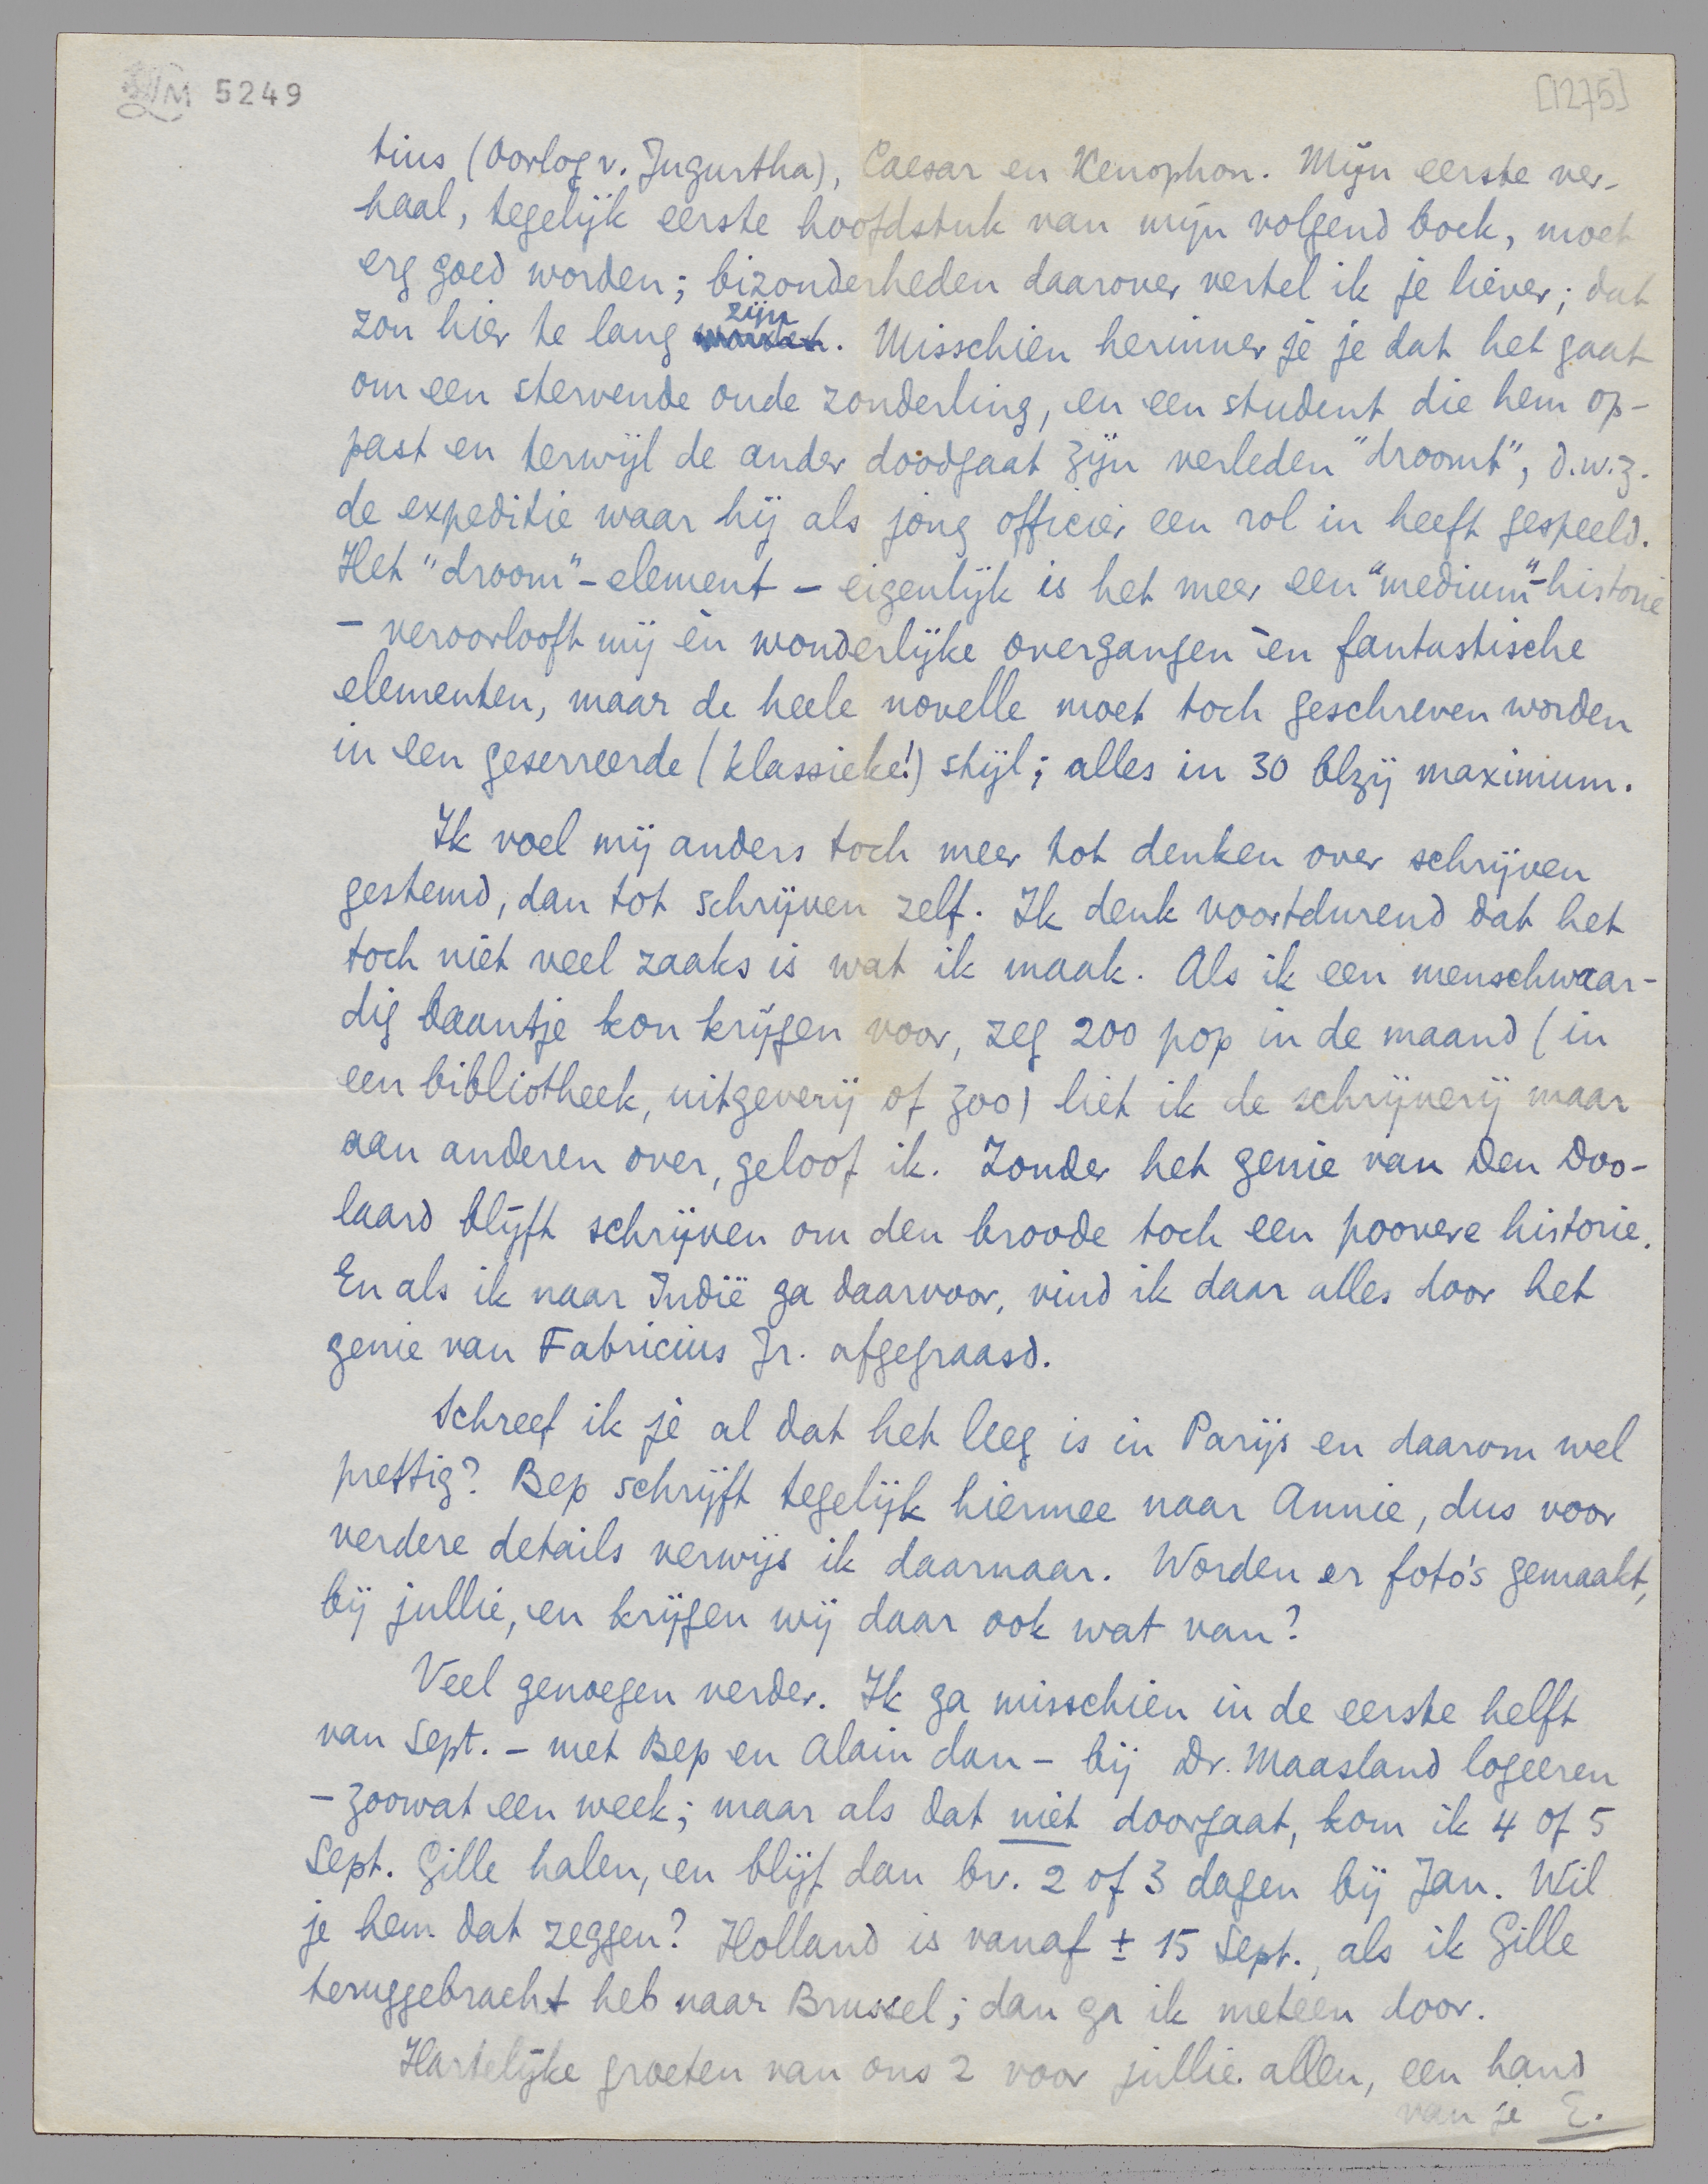 LM 5249
[1275]
tius (Oorlog v. Jugurtha), Caesar en Xenophon. Mijn eerste ver-
haal, tegelijk eerste hoofdstuk van mijn volgend boek, moet
erg goed worden; bizonderheden daarover vertel ik je liever; dat
zou hier te lang zijn. Misschien herinner je je dat het gaat
om een stervende oude zonderling, en een student die hem op-
past en terwijl de ander doodgaat zijn verleden "droomt", d.w.z.
de expeditie waar hij als jong officier een rol in heeft gespeeld.
Het "droom"-element - eigenlijk is het meer een "medium"-historie
- veroorlooft mij èn wonderlijke overgangen èn fantastische
elementen, maar de heele novelle moet toch geschreven worden
in een geserreerde (klassieke!) stijl; alles in 30 blzij maximum.
Ik voel mij anders toch meer tot denken over schrijven
gestemd, dan tot schrijven zelf. Ik denk voortdurend dat het
toch niet veel zaaks is wat ik maak. Als ik een menschwaar-
dig baantje kon krijgen voor, zeg 200 pop in de maand (in
een bibliotheek, uitgeverij of zoo) liet ik de schrijverij maar
aan anderen over, geloof ik. Zonder het genie van Den Doo-
laard blijft schrijven om den broode toch een poovere historie.
En als ik naar Indië ga daarvoor, vind ik daar alles door het
genie van Fabricius Jr. afgegraasd.
Schreef ik je al dat het leeg is in Parijs en daarom wel
prettig? Bep schrijft tegelijk hiermee naar Annie, dus voor
verdere details verwijs ik daarnaar. Worden er foto's gemaakt,
bij jullie, en krijgen wij daar ook wat van?
Veel genoegen verder. Ik ga misschien in de eerste helft
van Sept. - met Bep en Alain dan - bij Dr. Maasland logeeren
- zoowat een week; maar als dat niet doorgaat, kom ik 4 of 5
Sept. Gille halen, en blijf dan bv. 2 of 3 dagen bij Jan. Wil
je hem dat zeggen? Holland is vanaf ± 15 Sept., als ik Gille
teruggebracht heb naar Brussel; dan ga ik meteen door.
Hartelijke groeten van ons 2 voor jullie allen, een hand
van je E.